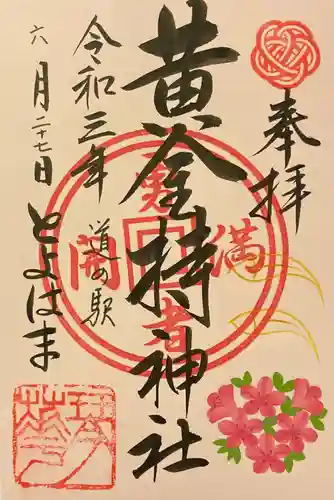 奉拝
黄金持神社
令和三年
道の駅
六月二十七日
とよはま
満
開